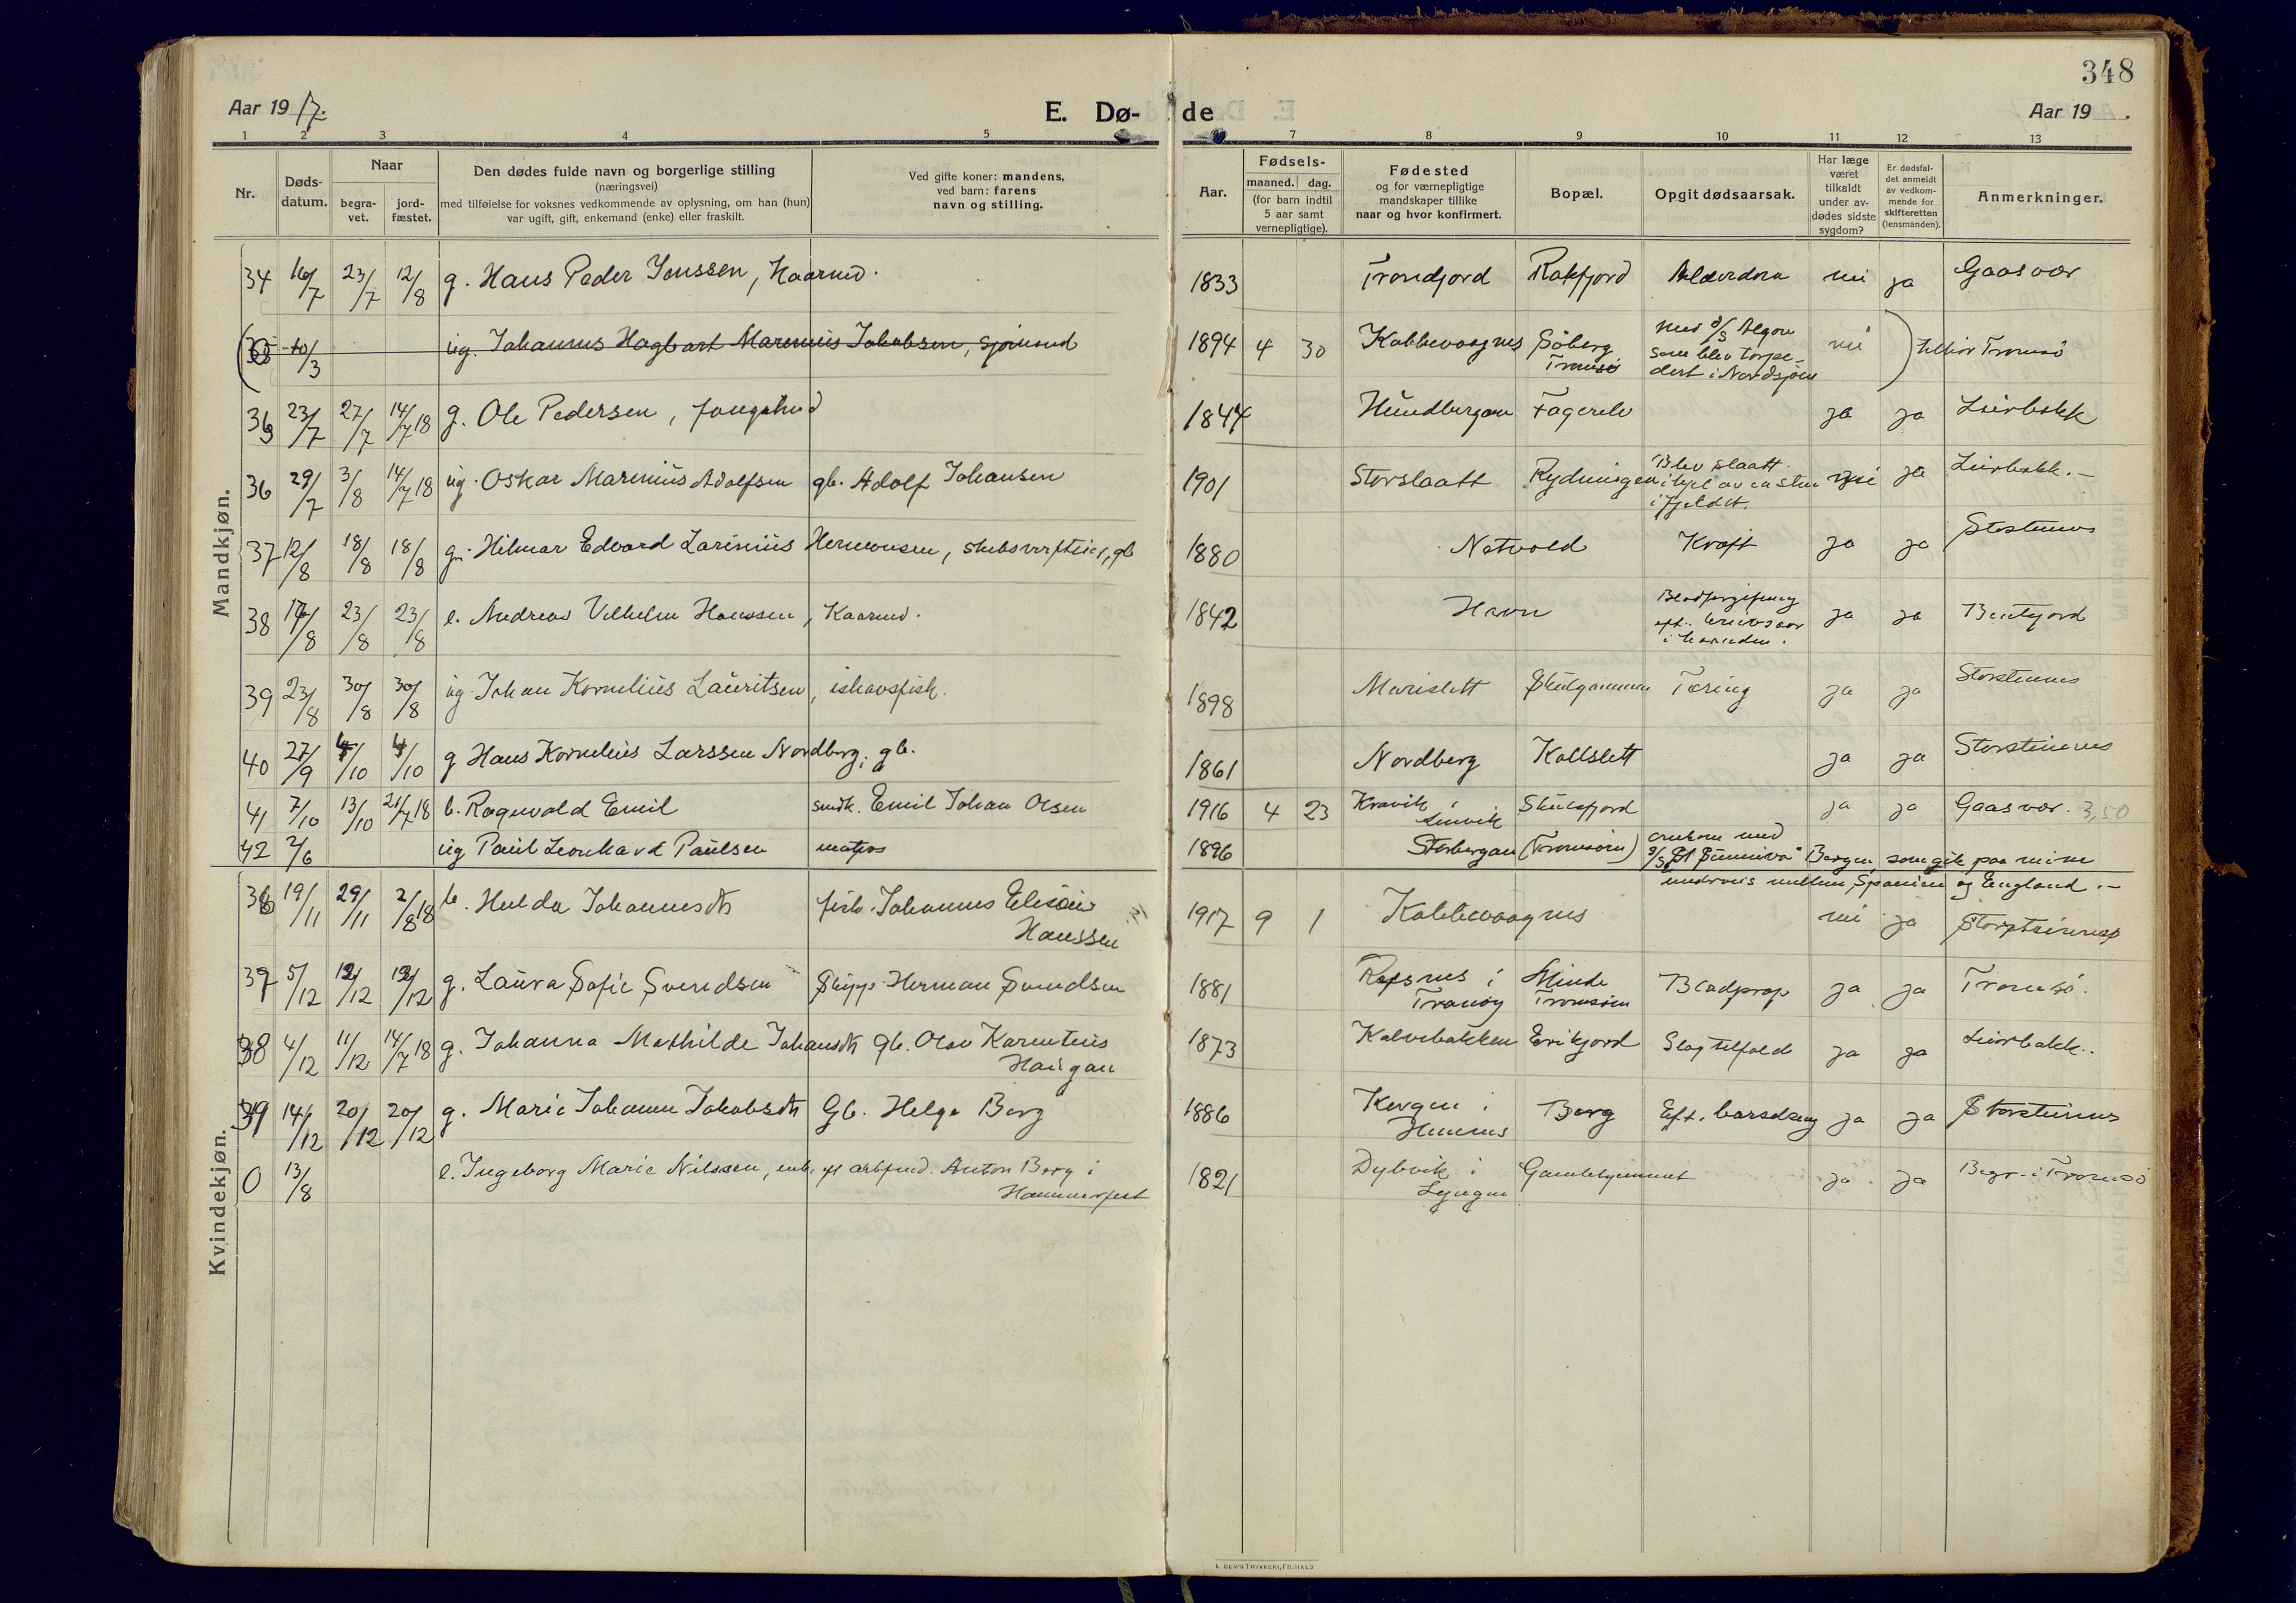 348
Aar 1917.
E. Dø-
de
Aar 19 .
1 2 3 4 5 6 7 8 9 10 11 12 13
Nr.
Døds-
datum.
Naar
begra-
vet.
jord-
fæstet.
Den dødes fulde navn og borgerlige stilling
(næringsvei)
med tilføielse for voksnes vedkommende av oplysning, om han (hun)
var ugift, gift, enkemand (enke) eller fraskilt.
Ved gifte koner: mandens,
ved barn: farens
navn og stilling.
Aar.
Fødsels-
maaned. dag.
(for barn indtil
5 aar samt
vernepligtige).
Fødested
og for værnepligtige
mandskaper tillike
naar og hvor konfirmert.
Bopæl.
Opgit dødsaarsak.
Har læge
været
tilkaldt
under av-
dødes sidste
sygdom?
Er dødsfal-
det anmeldt
av vedkom-
mende for
skifteretten
(lensmanden).
Anmerkninger.
Mandkjøn.
34 16/7 23/7 12/8 g. Hans Peder Jenssen, Kaarmd. 1833 Trondjord Rakfjord Alderdom nei ja Gaasvær
10/3 ug. Johannes Hagbart Marenius Jakobsen, sjømand 1894 4 30 Kobbevaagnes Søberg Tromsø
Med d/s Algon
som blev torpe-
dert i Nordsjøen
nei
tilhør Tromsø
23/7 27/7 14/7 18 g. Ole Pedersen, fangstmd 1844 Hundbergan Fagerelv ja ja Leirbakk
36 29/7 3/8 14/7 18 ug. Oskar Marenius Adolfsen gb. Adolf Johansen 1901 Storslaatt Rydningen
Blev slaatt
ihjel av en sten
i fjeldet.
nei ja Leirbakk.-
37 12/8 18/8 18/8 g. Hilmar Edvard Larinius Hermansen, gb 1880 Notvold Kræft ja ja Stostennes
38 23/8 23/8 e. Andreas Vilhelm Hanssen, Kaarmd. 1842 Havn
Blodforgiftning
i haanden.
ja ja Bentsjord
39 23/8 30/8 30/8 ug. Johan Kornelius Lauritsen, ishavsfisk. 1898 Marislett Skulgammen Tæring ja ja Storstennes
40 27/9 4/10 4/10 g Hans Kornelius Larssen Nordberg, gb. 1861 Nordberg Kallslett ja ja Storstennes
41 7/10 13/10 21/7 18 b. Ragnvald Emil smdk. Emil Johan Olsen 1916 4 23 Kravik i
Lenvik
Skulsfjord ja ja Gaasvær. 3,50
42 2/6 ug Paul Leonhard Paulsen matros 1896 Storbergan (Tromsøen) omkom med
d/s "St Sunniva" Bergen, som gik paa mine
underveis mellem Spanien og England.-
Kvindekjøn.
36 19/11 29/11 2/8 18 b. Hulda Johannesdt fisk. Johannes Eliseus
Hanssen
1917 9 1 Kobbevaagnes nei ja Storsteinnes
37 5/12 12/12 12/12 g. Laura Sofie Svendsen Skipp. Herman Svendsen 1881 Refsnes i
Tranøy
Minde
Tromsøen
Blodprop ja ja Tromsø.
38 4/12 11/12 14/7 18 g. Johanna Mathilde Johansdt gb. Olav Karentius
Haugan
1873 Kalvebakken Erikjord Slagtilfæld ja ja Leirbakk.
39 14/12 20/12 20/12 g. Marie Johanne Jakobsdt Gb. Helge Berg 1886
Berg Eft. barselseng ja ja Storsteinnes
0 13/8 e. Ingeborg Marie Nilssen, enk. eft arbfmd. Anton Berg i
Hammerfest
1821 Dybvik i
Lyngen
Gamlehjemmet ja ja Begr. i Tromsø